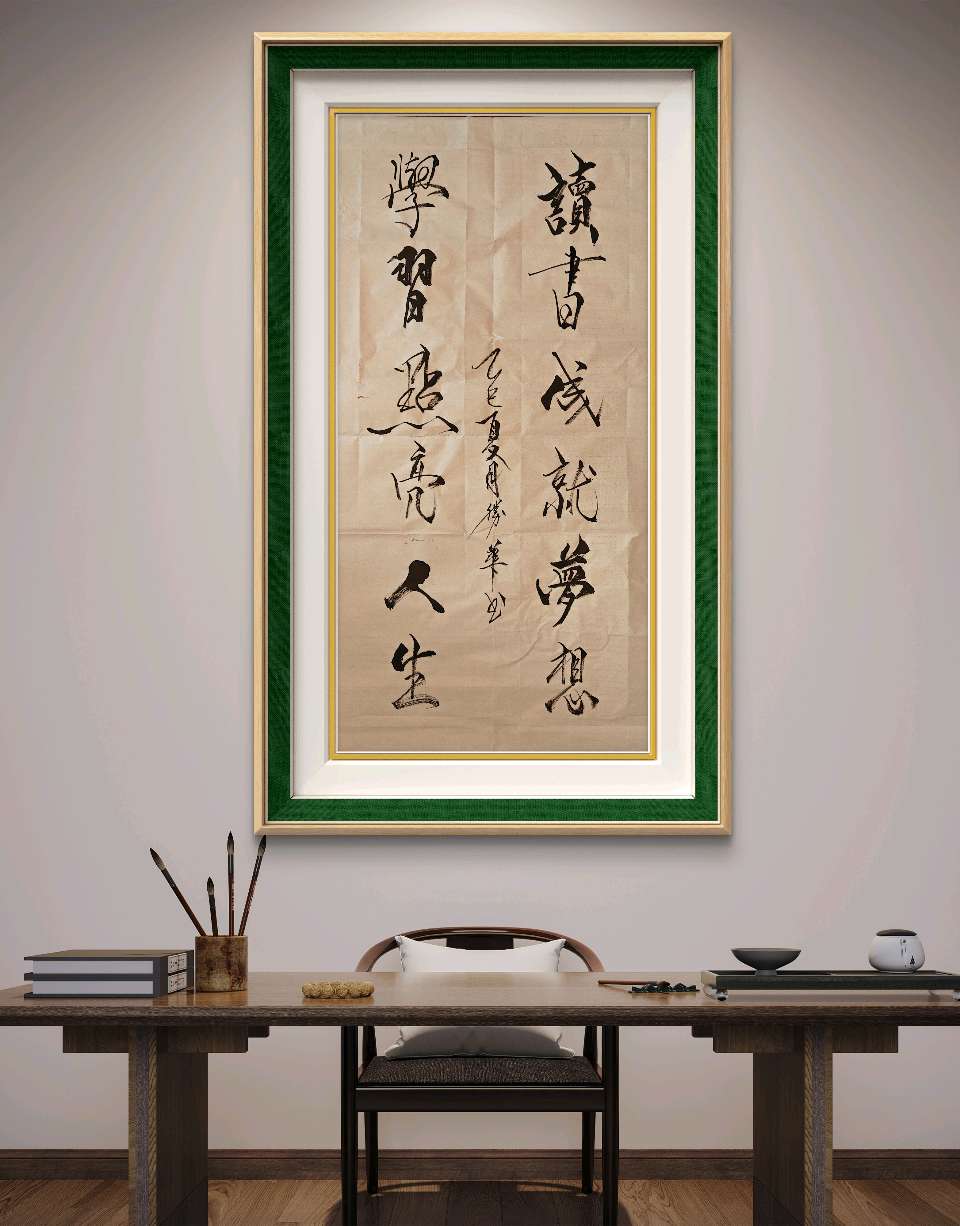 讀書成就夢想
學習點亮人生
乙巳夏月勝華书